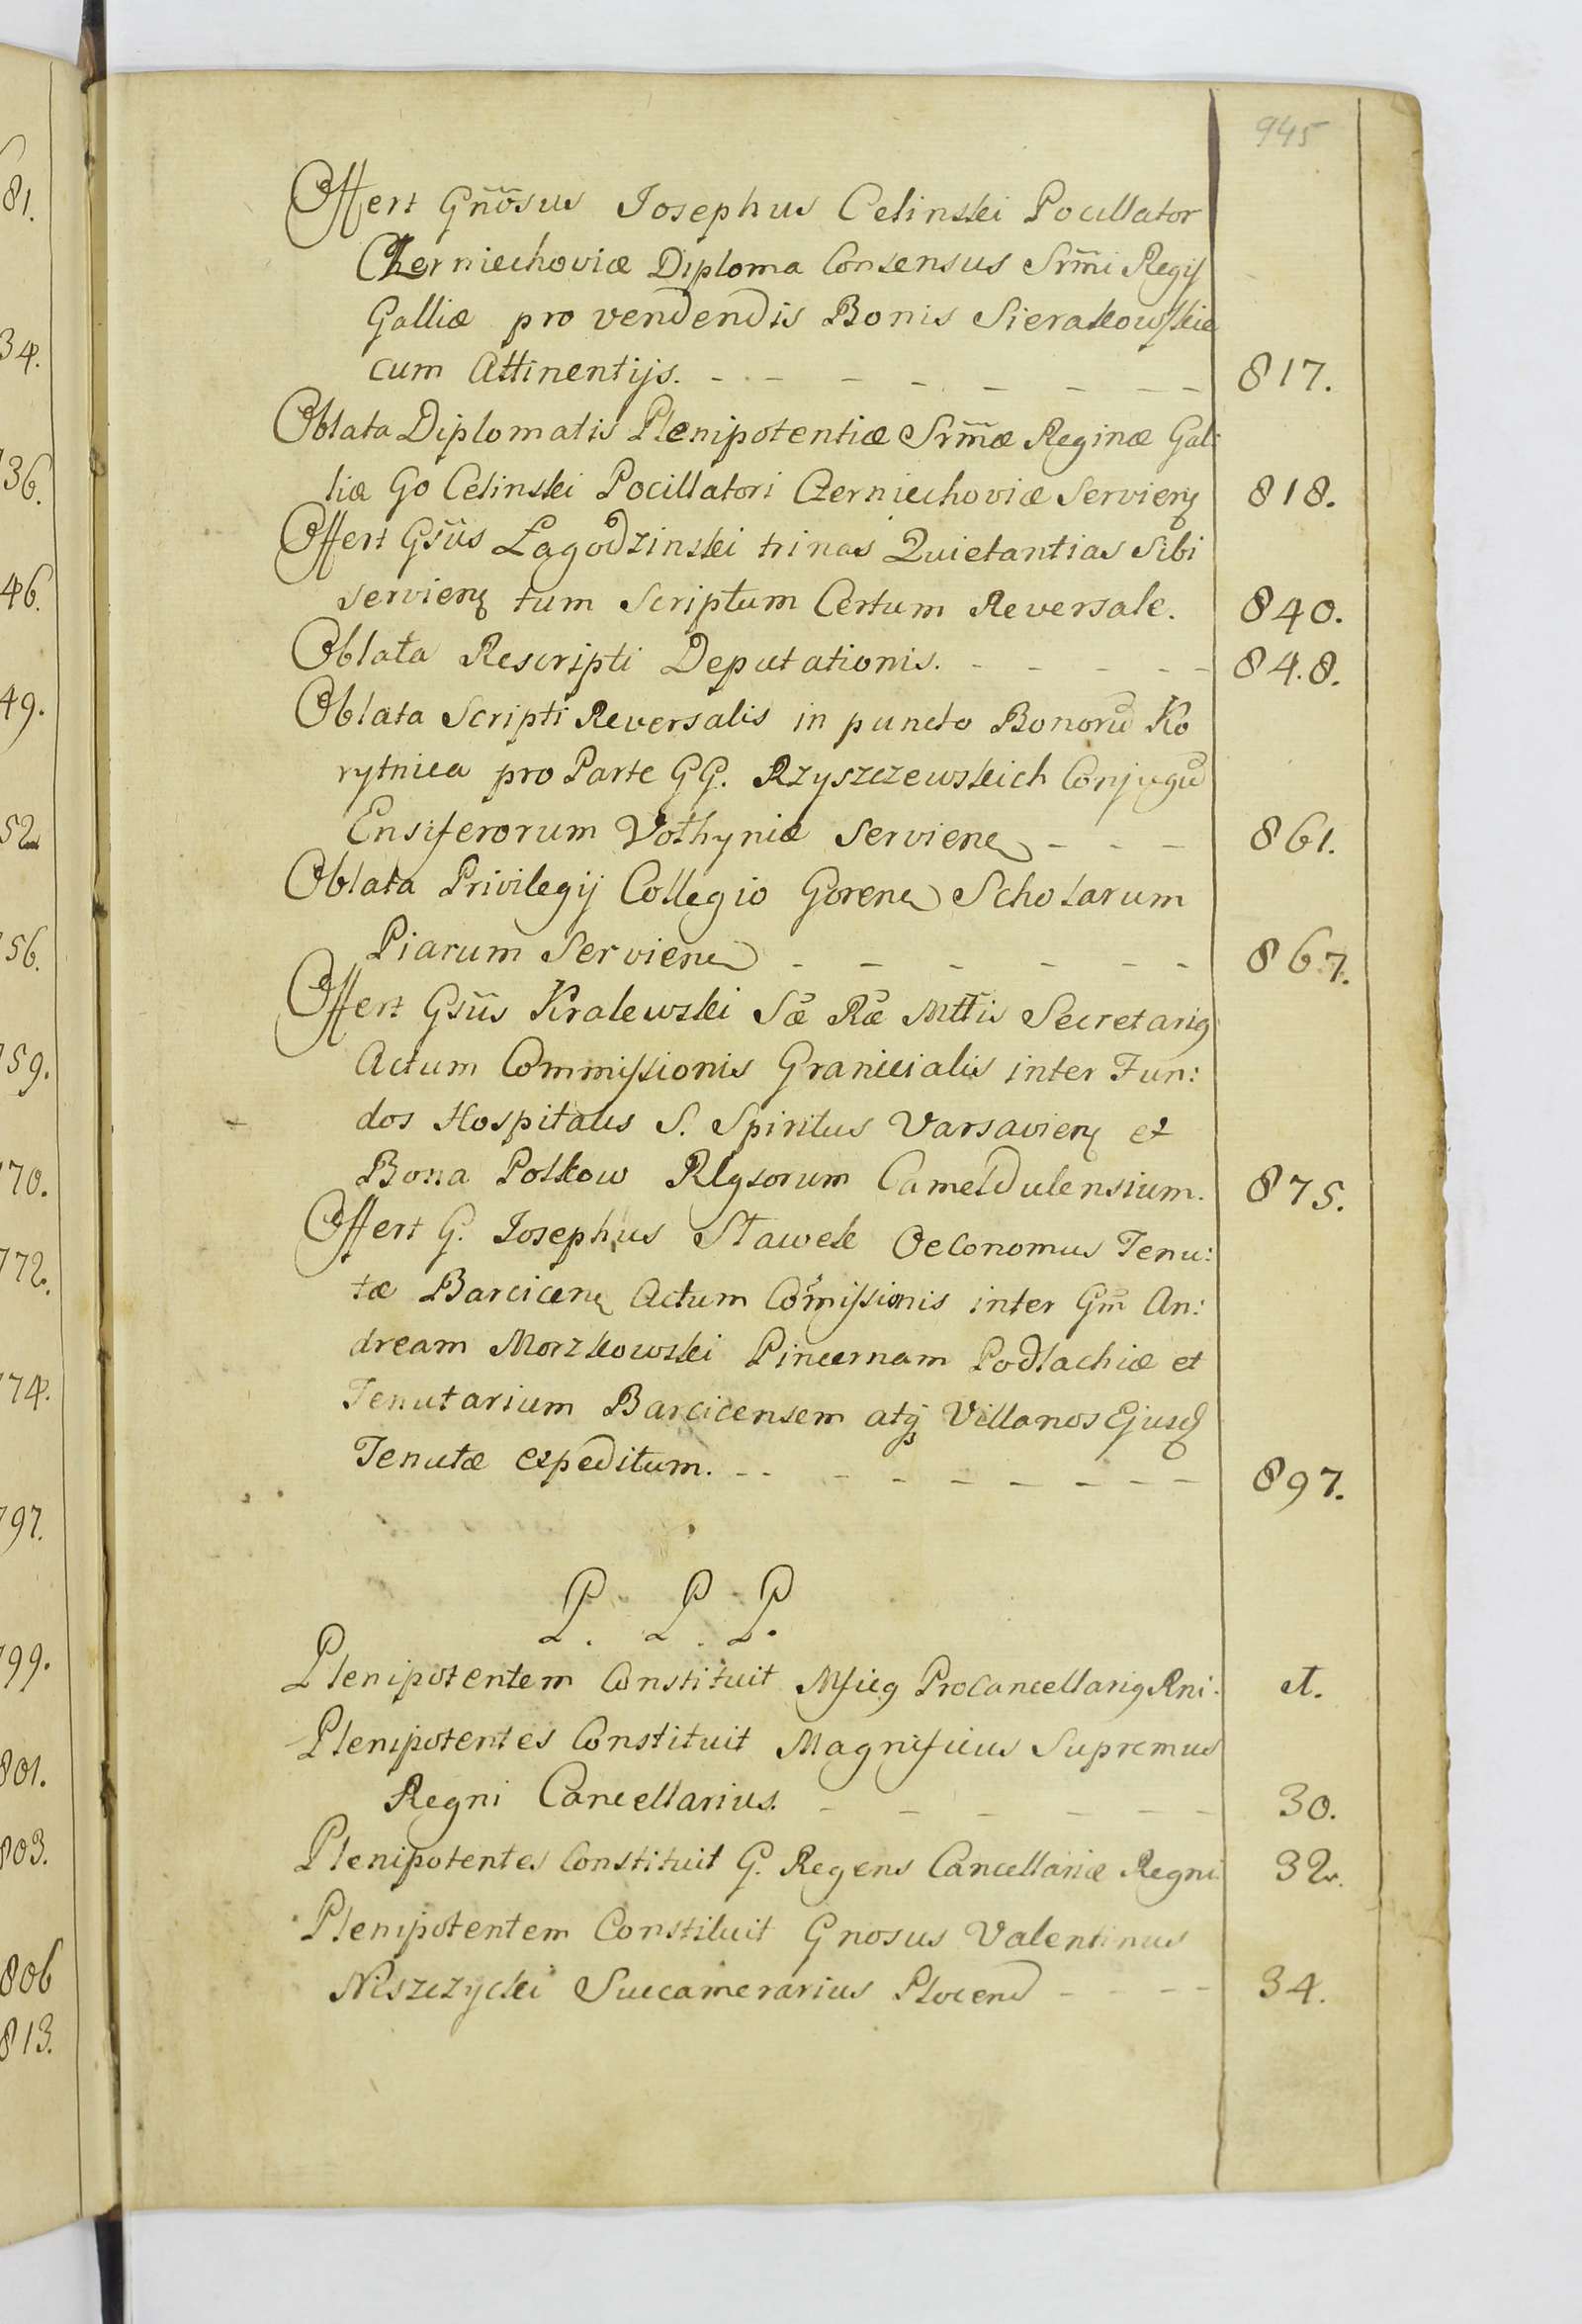 945
Offert Gnosus Josephus Celinski Pocillator
Czerniechoviæ Diploma Consensus Srm̃i Regis
Galliæ pro vendendis Bonis Sierakowskie
cum Attinentijs. - - - - - - - - 817.
Oblata Diplomatis Plenipotentiæ Srm̃æ Reginæ Gal:
liæ Go Celinski Pocillatori Czerniechoviæ Servieng 818.
Offert Gsũs Łagodzinski trinas Quietantias Sibi
servieng tum Scriptum Certum Reversale. 840.
Oblata Rescripti Deputationis. - - - - - 848.
Oblata Scripti Reversalis in puncto Bonorũ Ko
rytnica pro Parte GG. Rzyszczewskich Conjugũ
Ensiferorum Volhyniæ Serviene - - - 861.
Oblata Privilegij Collegio Gorene Scholarum
Piarum Serviene - - - - - - 867.
Offert Gsũs Kralewski Sæ Ræ Mttis Secretarig
Actum Commissionis Granicialis inter Fun:
dos Hospitalis S. Spiritus Varsavieng et
Bona Polkow Rlgsorum Cameldulensium. 875.
Offert G. Josephus Sławek Oeconomus Tenu:
tæ Barciceng Actum Com̃issionis inter Gm̃ An:
dream Morzkowski Pincernam Podlachiæ et
Tenutarium Barcicensem atq Villanos Ejusd
Tenutæ expeditum. - - - - - - - - - 897.
P. P. P.
Plenipotentem Constituit Mficg Procancellarig Rni. et.
Plenipotentes Constituit Magnificus Supremus
Regni Cancellarius. - - - - - - 30.
Plenipotentes Constituit G. Regens Cancellariæ Regni. 32.
Plenipotentem Constituit Gnosus Valentinus
Niszczycki Succamerarius Plocen - - - - 34.
81.
34.
36.
46.
49.
52
56.
59.
70.
772.
74.
97.
799.
801.
803.
806
813.